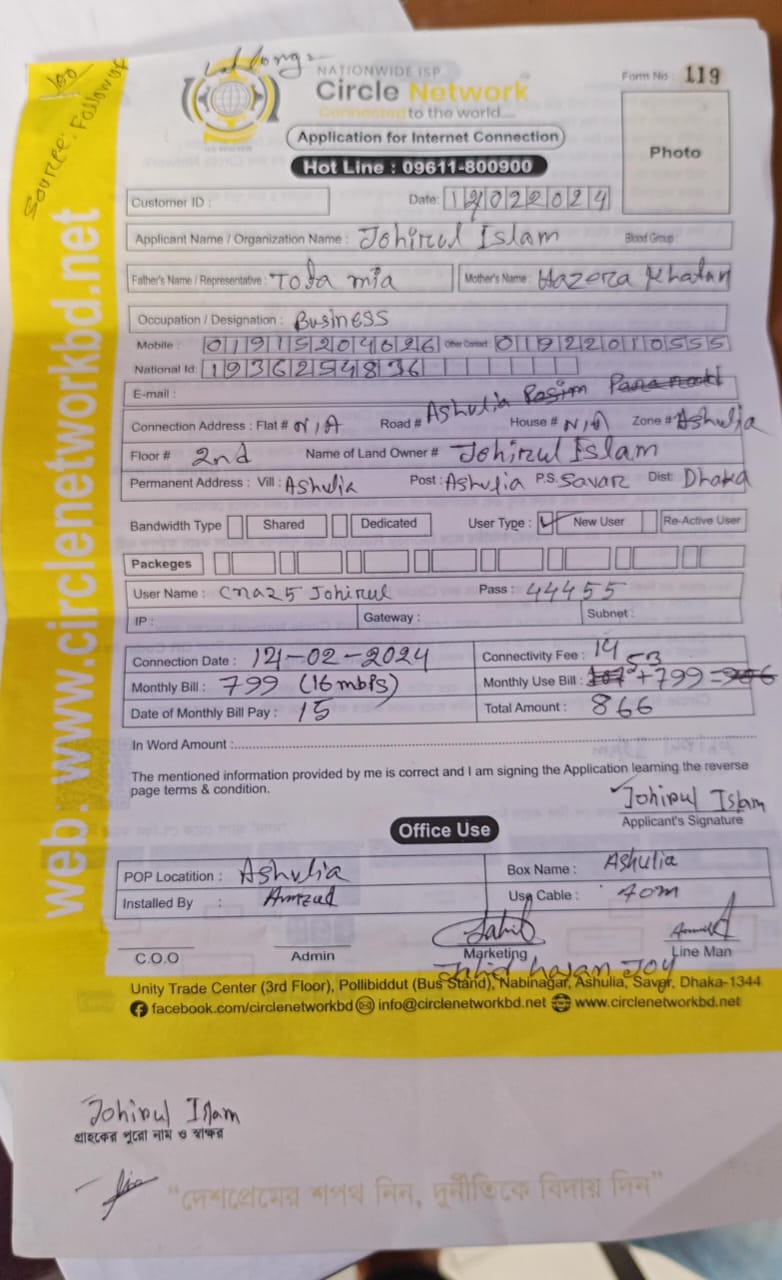 Source: Follow up
NATIONWIDE ISP
Circle Network
Connected to the world....
Form No : 119
Application for Internet Connection
Hot Line : 09611-800900
Photo
Customer ID :
Date: 12022024
Applicant Name / Organization Name : Johirul Islam Blood Group :
Father's Name / Representative : Tota mia Mother's Name : Hazera Khatun
Occupation / Designation : Business
Mobile : 01915204626 Other Contact : 01922010555
National Id: 1936254836
E-mail :
Connection Address : Flat # N/A Road # Ashulia House # N/A Zone # Ashulia
Floor # 2nd Name of Land Owner # Johirul Islam
Permanent Address : Vill : Ashulia Post : Ashulia P.S. Savar Dist: Dhaka
Bandwidth Type Shared Dedicated User Type : New User Re-Active User
Packeges
User Name : Cna25 Johirul Pass : 44455
IP : Gateway : Subnet :
Connection Date : 14-02-2024 Connectivity Fee : 14
Monthly Bill : 799 (16 mbps) Monthly Use Bill : 53 +799 =
Date of Monthly Bill Pay : 15 Total Amount : 866
In Word Amount :
The mentioned information provided by me is correct and I am signing the Application learning the reverse
page terms & condition.
Johirul Islam
Applicant's Signature
Office Use
POP Locatition : Ashulia Box Name : Ashulia
Installed By : Amzad Use Cable : 40m
C.O.O Admin Marketing Line Man
Jahid hasan Joy
Unity Trade Center (3rd Floor), Pollibiddut (Bus Stand), Nabinagar, Ashulia, Savar, Dhaka-1344
facebook.com/circlenetworkbd info@circlenetworkbd.net www.circlenetworkbd.net
web : www.circlenetworkbd.net
Johirul Islam
গ্রাহকের পুরো নাম ও স্বাক্ষর
“দেশপ্রেমের শপথ নিন, দুর্নীতিকে বিদায় দিন”